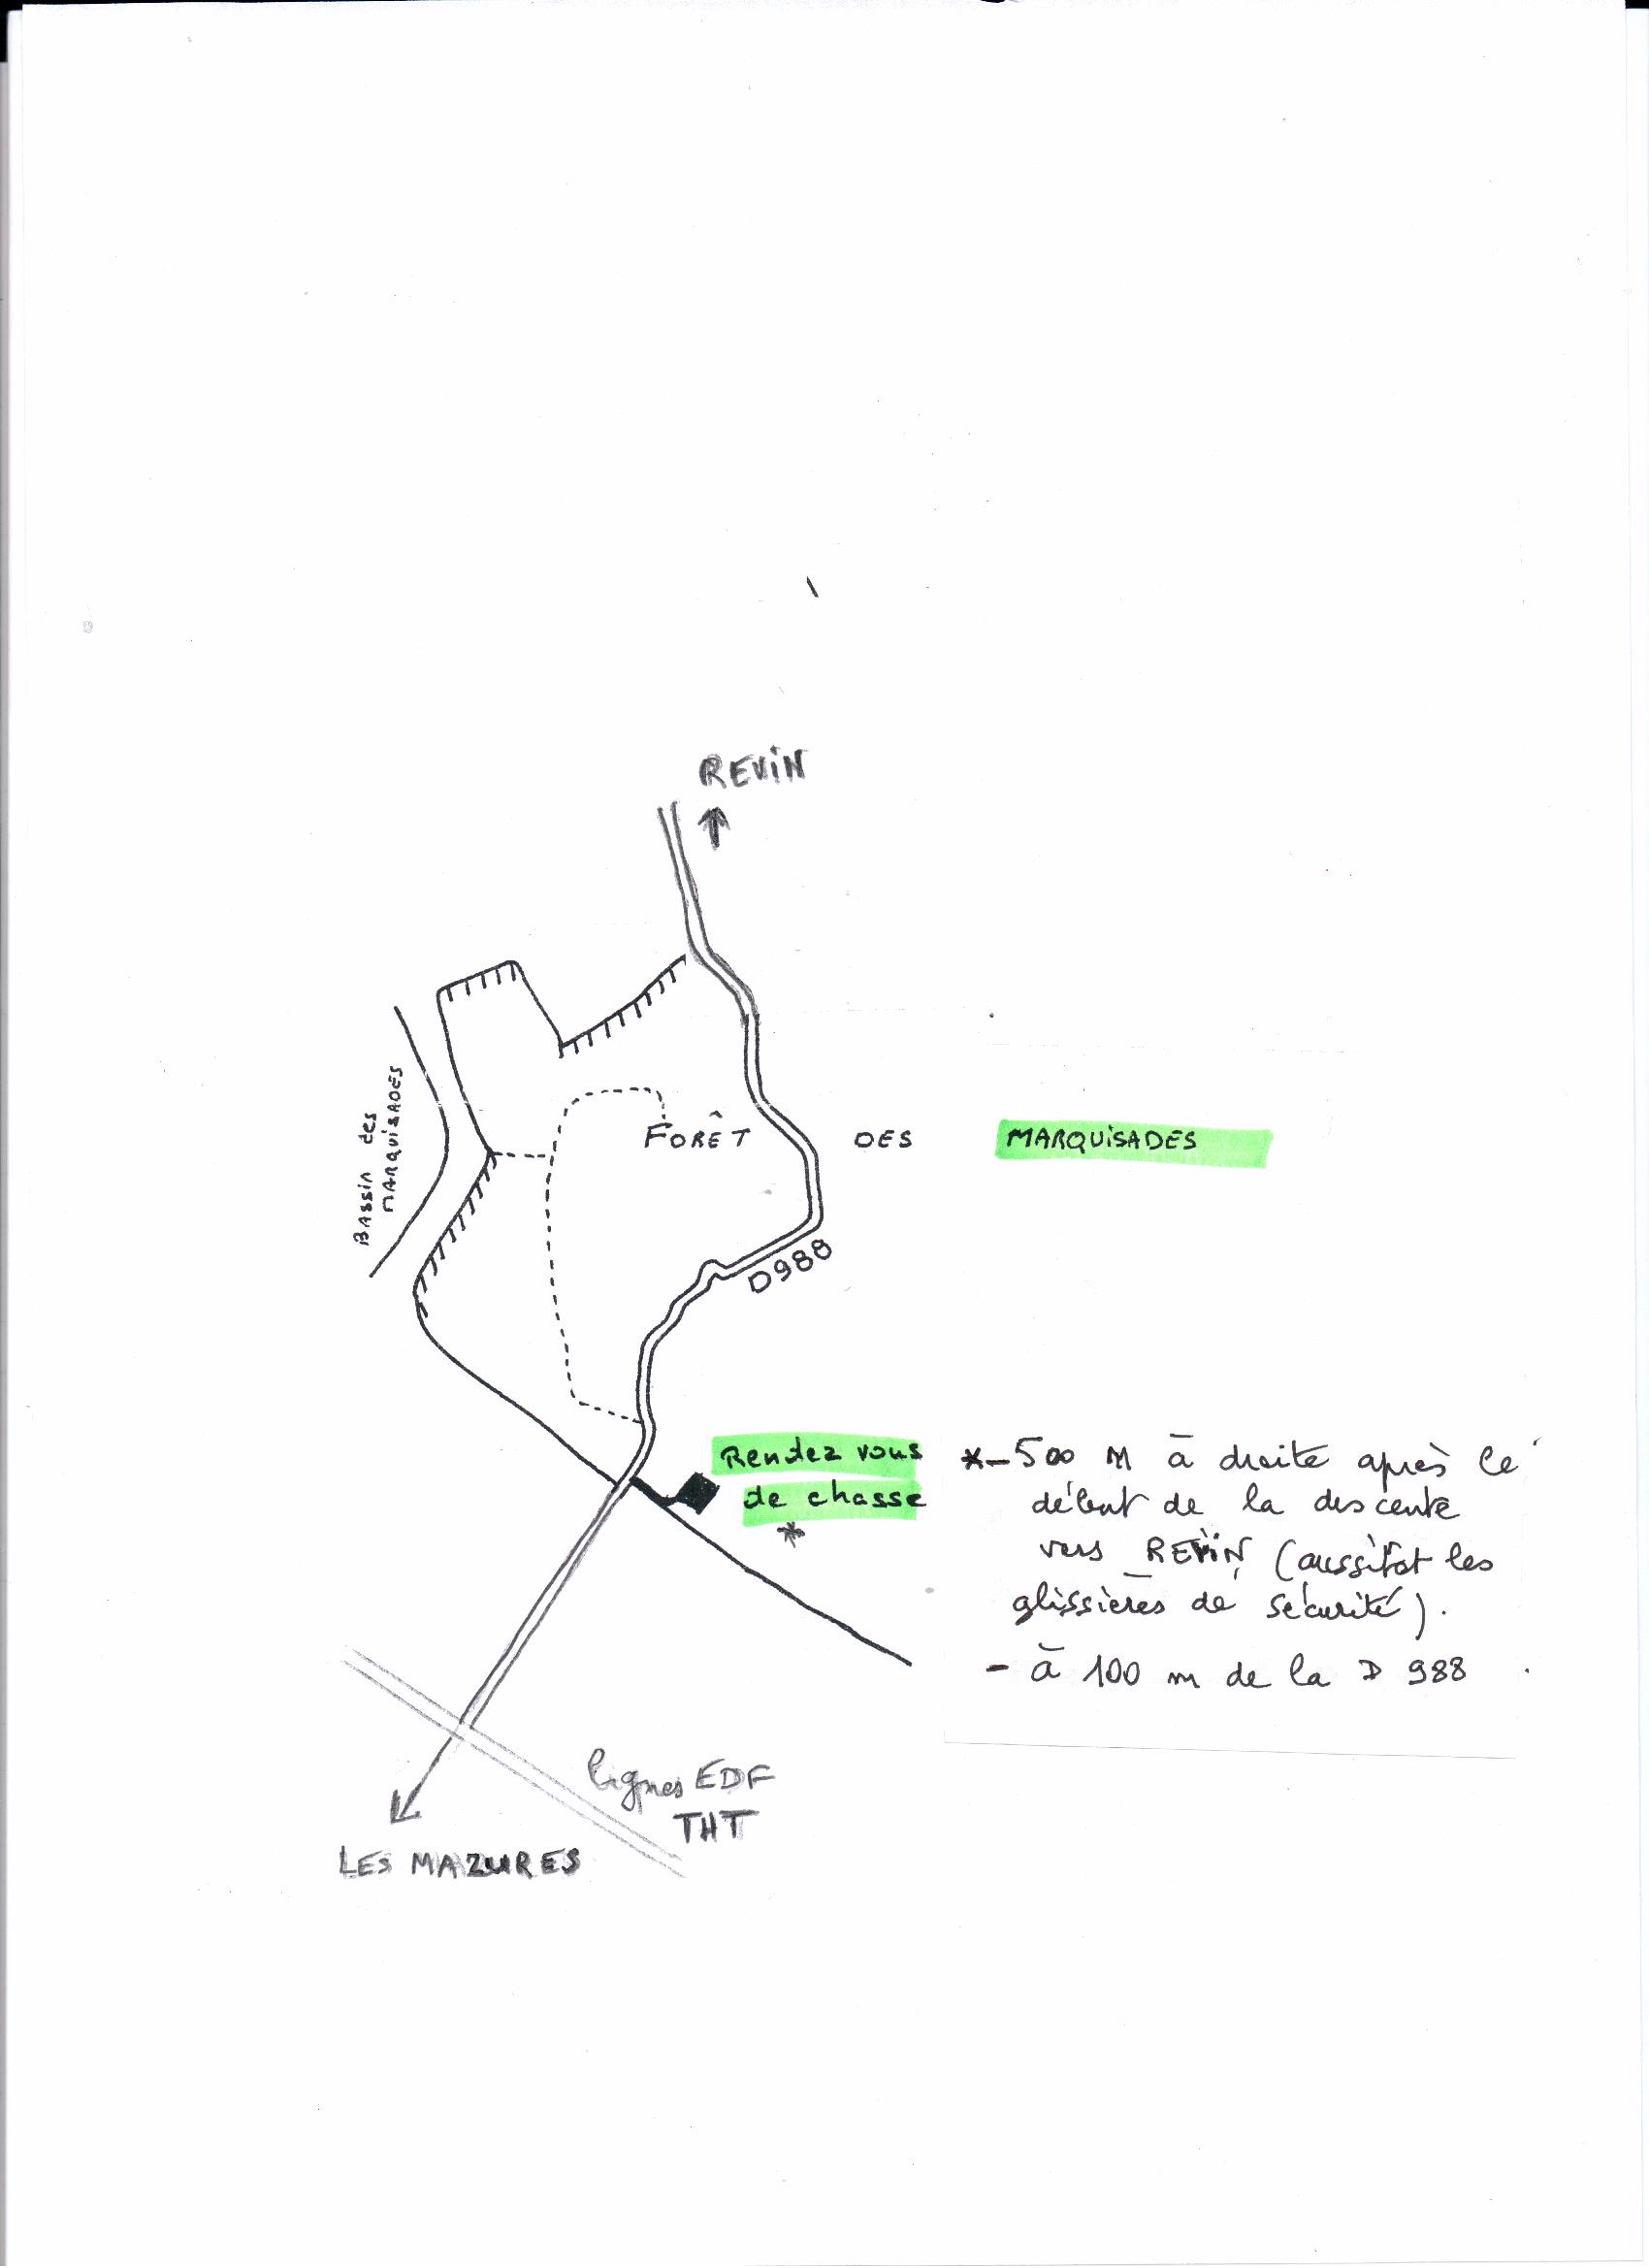 REVIN
BASSIN des
MARQUISADES
FORÊT DES MARQUISADES
D988
Rendez vous
de chasse
*
*- 500 M à droite après le
début de la descente
vers REVIN (aussitot les
glissières de sécurité).
- à 100 m de la D 988
lignes EDF
THT
LES MAZURES